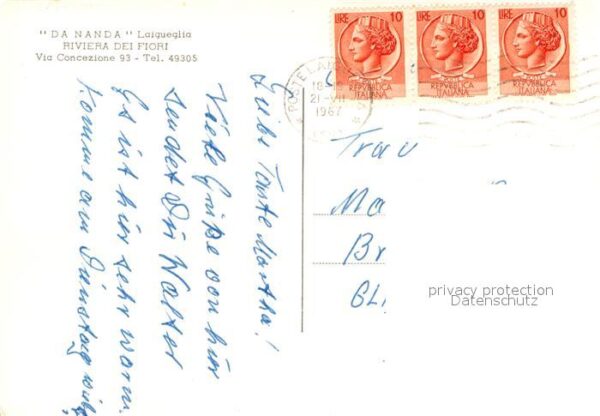 "DA NANDA" Laigueglia
RIVIERA DEI FIORI
Via Concezione 93 - Tel. 49305
LIRE 10
POSTE
REPVBBLICA
ITALIANA
LIRE 10
POSTE
REPVBBLICA
ITALIANA
LIRE 10
POSTE
REPVBBLICA
ITALIANA
POSTE
18
21-VII
1967
Liebe Tante Martha!
Viele Grüße von hier
sendet Dir Walter
Es ist hier sehr warm.
Komme am Dienstag
Frau
Ma
Br
GL.
privacy protection
Datenschutz